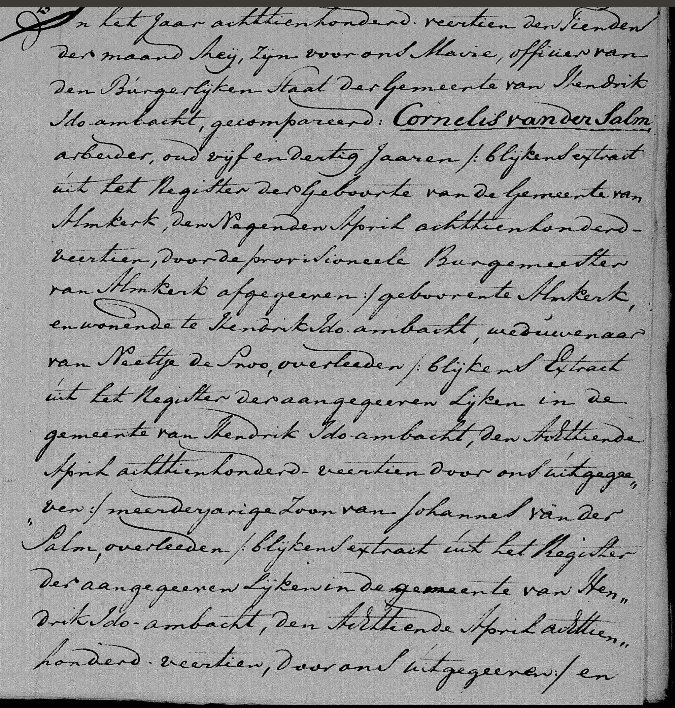 In het Jaar achthienhonderd veertien den Tienden
der maand Meij, zijn voor ons Mavie, officier van
den Burgerlijken Staat der Gemeente van Hendrik
Ido ambacht, gecompareerd: Cornelis van der Salm,
arbeider, oud vijf en dertig Jaaren /: blijkens extract
uit het Register der Geboorte van de Gemeente van
Almkerk, den Negenden April achthienhonderd-
veertien, door de provisioneele Burgemeester
van Almkerk afgegeeven :/ gebooren te Almkerk,
en wonende te Hendrik Ido ambacht, weduwenaar
van Neeltje de Snoo, overleeden /: blijkens Extract
uit het Register der aangegeeven Lijken in de
gemeente van Hendrik Ido-ambacht, den Achttiende
April achthienhonderd-veertien door ons uitgegee„
ven :/ meerderjarige Zoon van Johannes van der
„Salm, overleeden /: blijkens extract uit het Register
der aangegeeven Lijken in de gemeente van Hen„
drik Ido-ambacht, den Achttiende April achttien„
honderd-veertien, door ons uitgegeeven :/ en